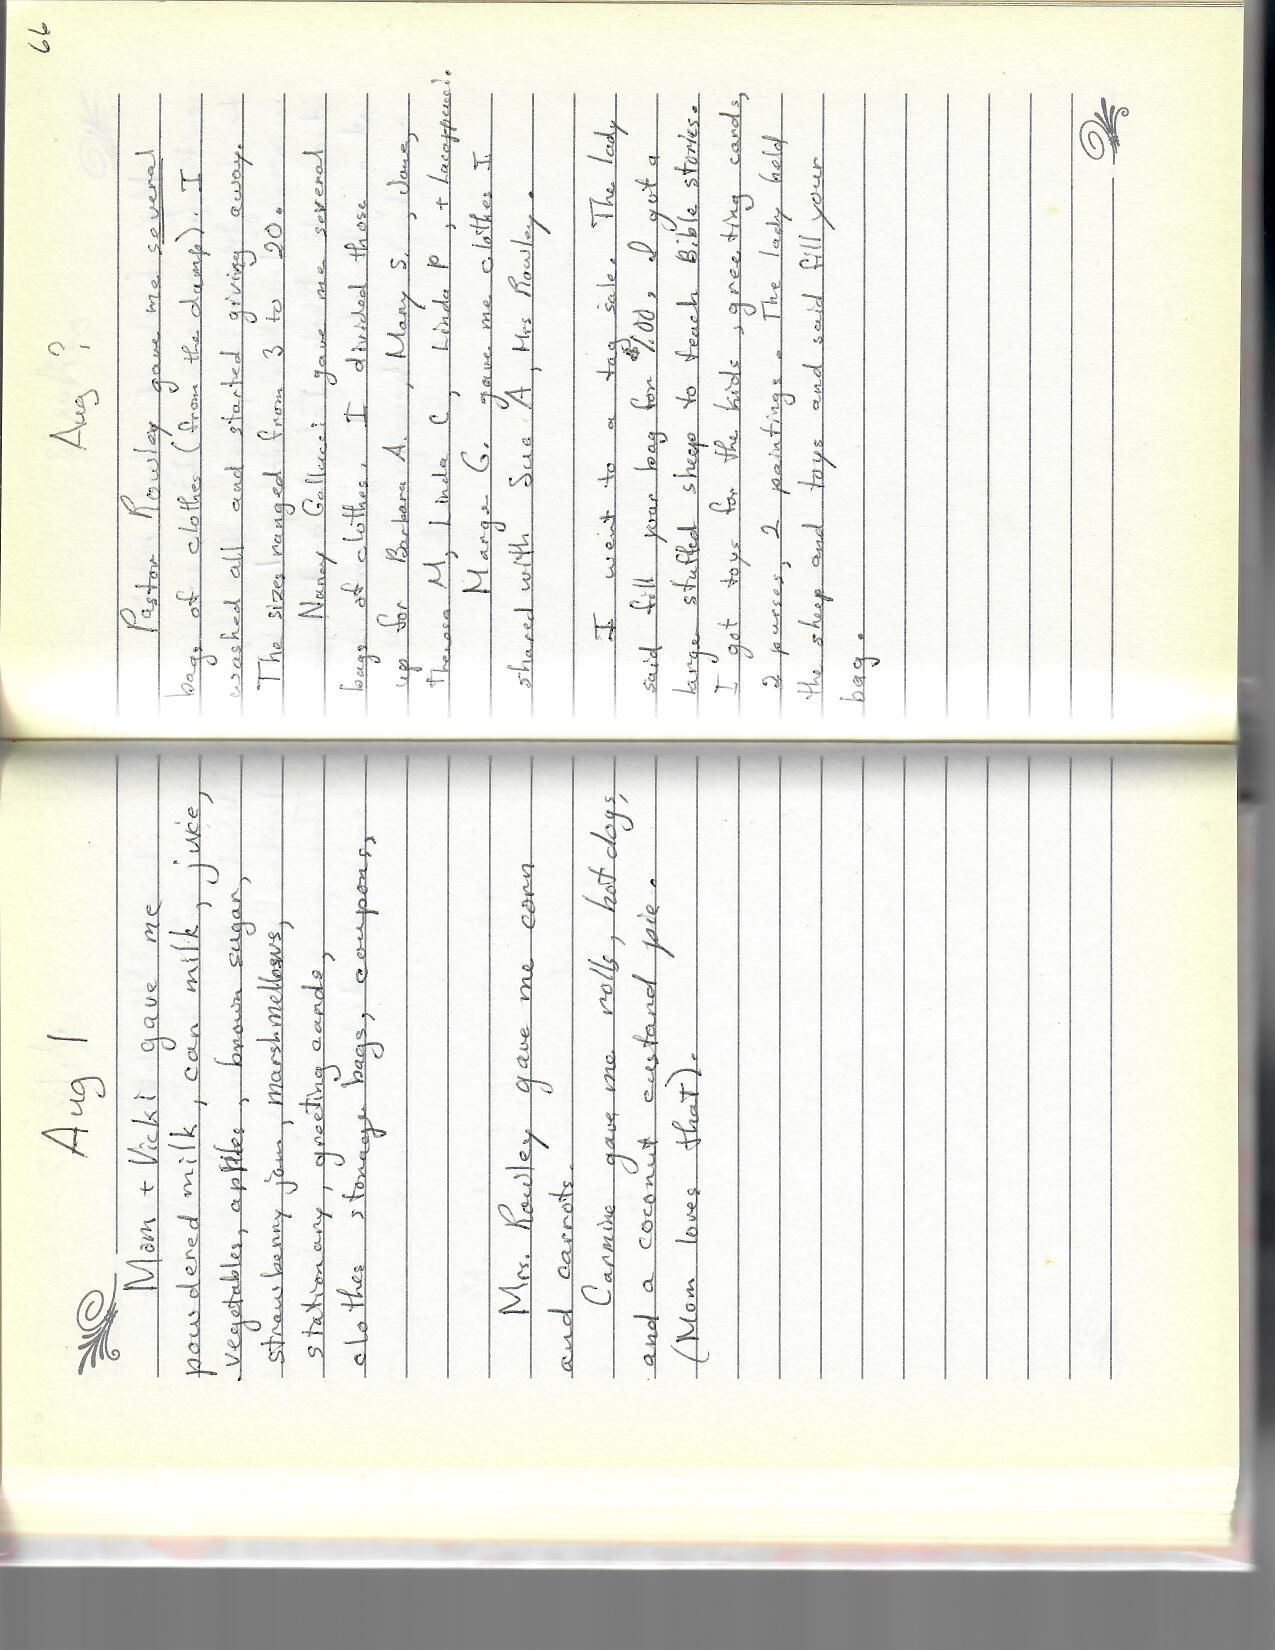 Aug 1
Mom + Vicki gave me
powdered milk, can milk, juice,
vegetables, apples, brown sugar,
strawberry jam, marshmellows,
stationary, greeting cards,
clothes storage bags, coupons,
Mrs. Rowley gave me corn
and carrots.
Carmine gave me rolls, hot dogs,
and a coconut custard pie.
(Mom loves that).
66
Aug ?
Pastor Rowley gave me several
bags of clothes (from the dump). I
washed all and started giving away.
The sizes ranged from 3 to 20.
Nancy Gallucci gave me several
bags of clothes. I divided those
up for Barbara A., Mary S., Jane,
Theresa M, Linda C, Linda P, +
Marge G. gave me clothes I
shared with Sue A, Mrs Rowley.
I went to a tag sale. The lady
said fill your bag for $1.00. I got a
large stuffed sheep to teach Bible stories.
I got toys for the kids, greeting cards,
2 purses, 2 paintings. The lady held
the sheep and toys and said fill your
bag.